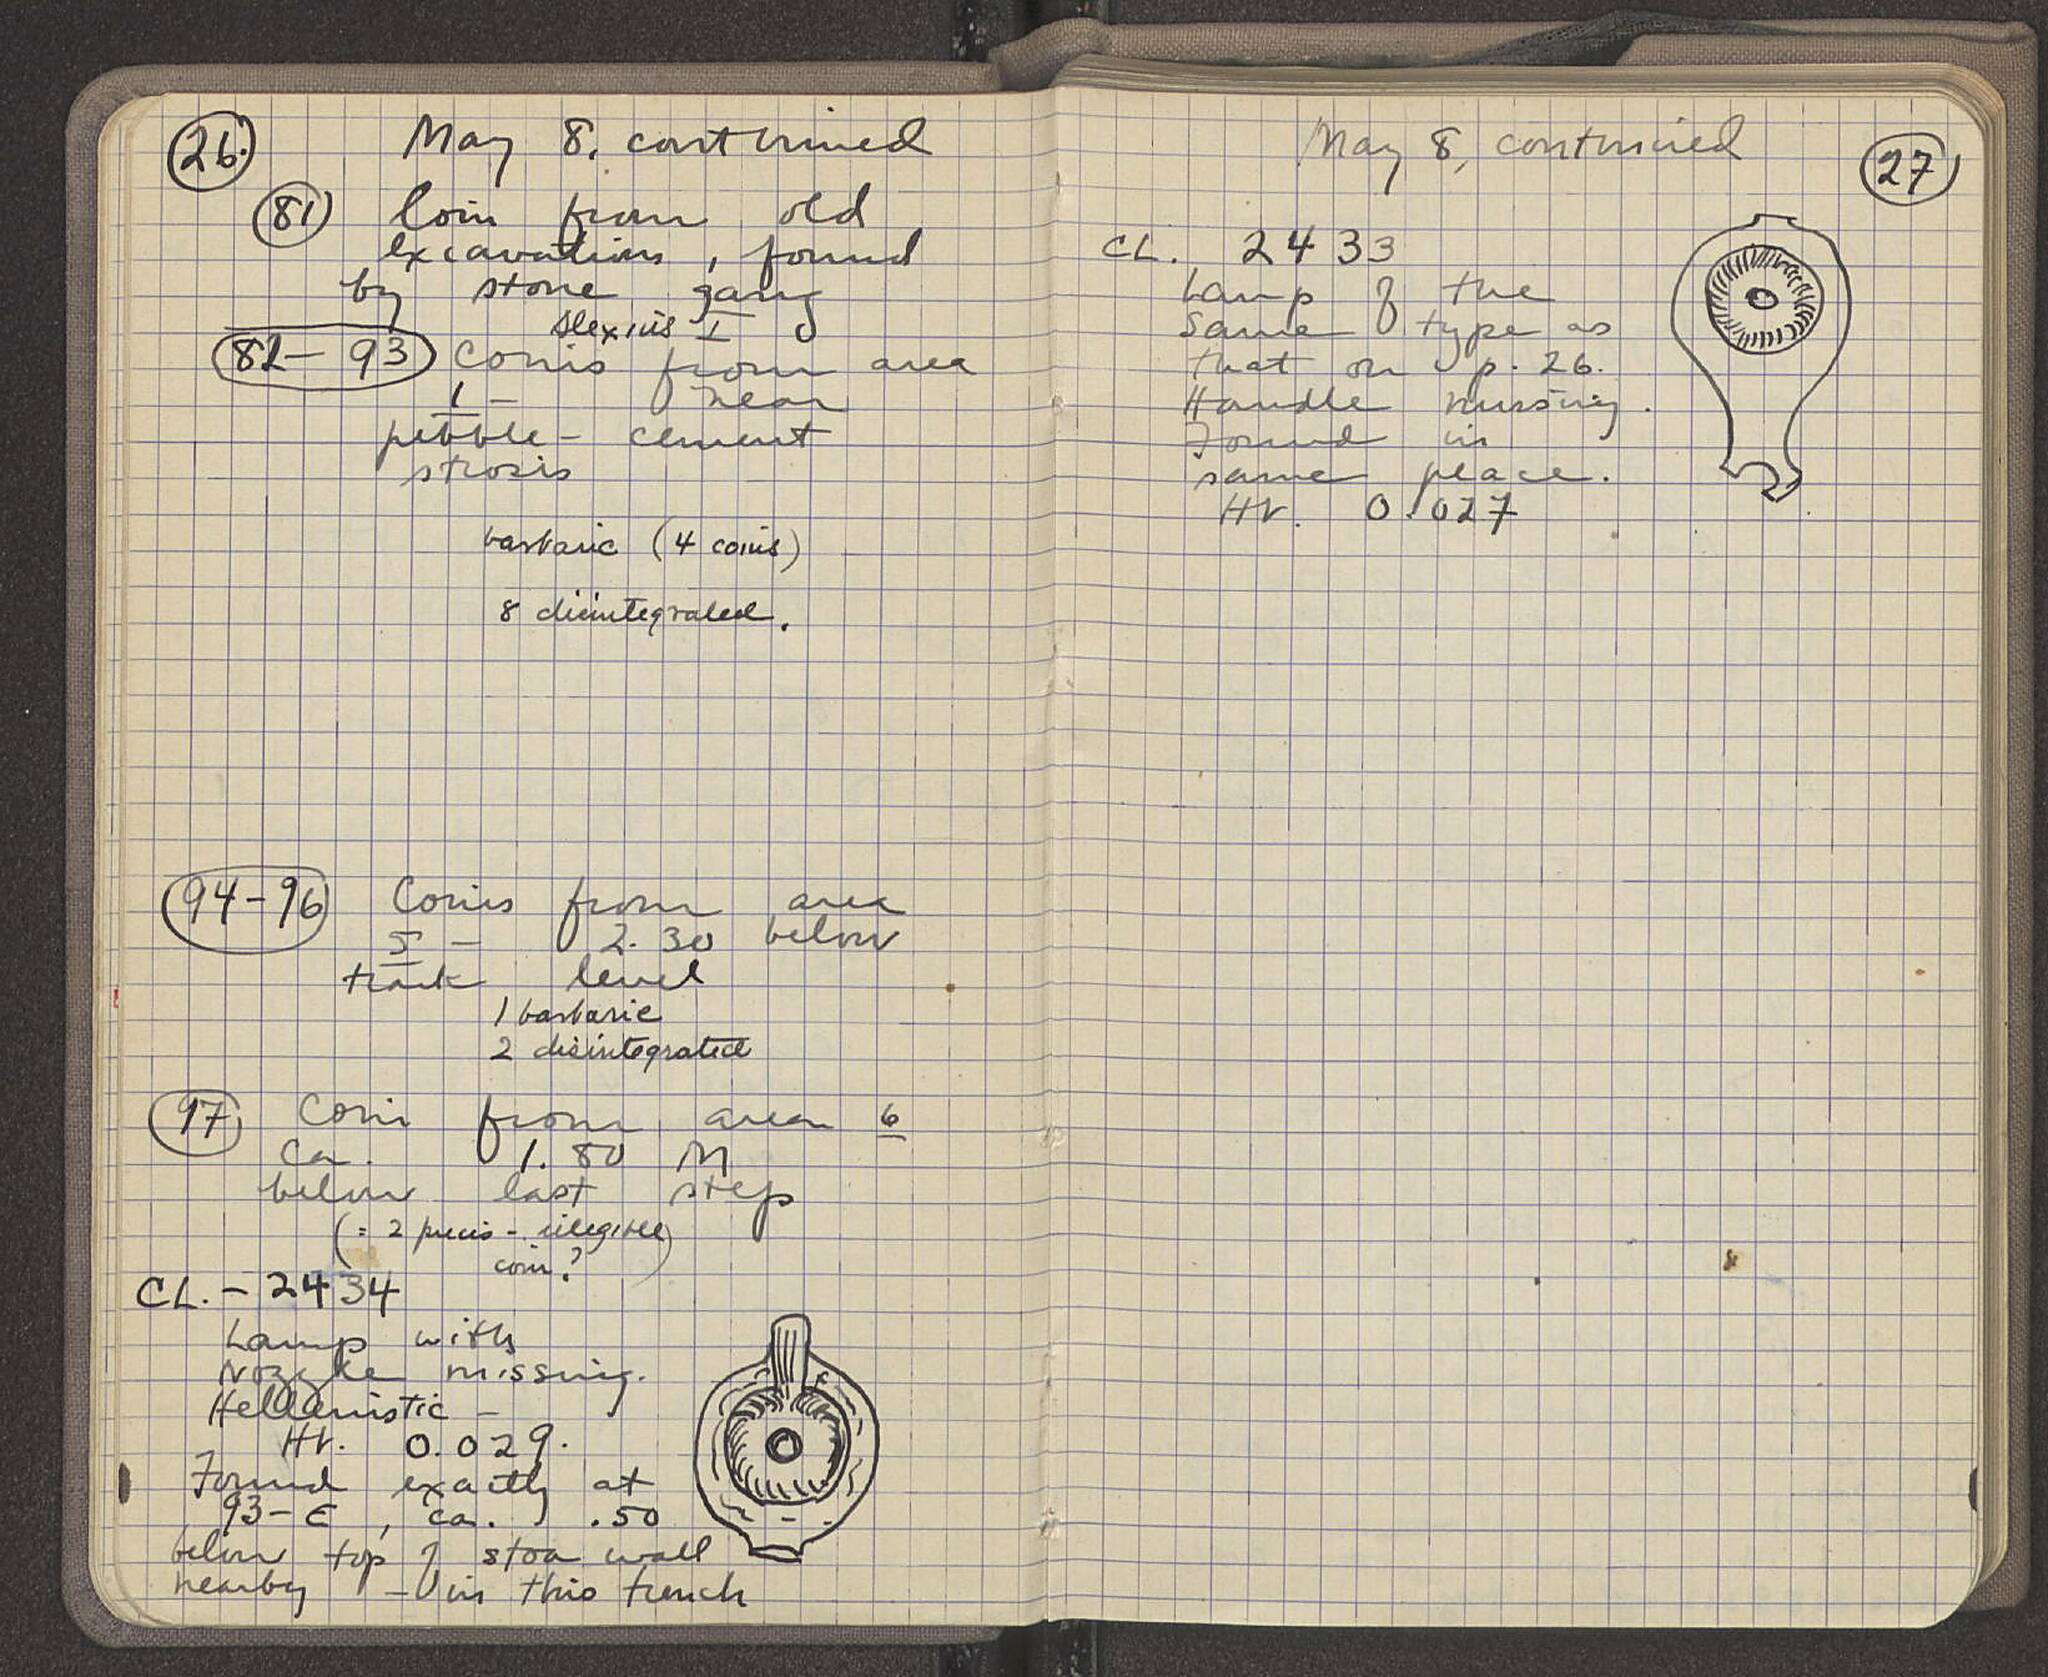 26.
May 8, continued
81 Coin from old
excavations, found
by stone gang
Alexius I
82-93 Coins from area
1 - near
pebble-cement
strosis
barbaric (4 coins)
8 disintegrated.
94-96 Coins from area
5 - 2.30 below
track level
1 barbaric
2 disintegrated
97 Coin from area 6
ca. 1.80 M
below last step
(= 2 pieces - illegible
coin?)
CL. - 2434
Lamp with
Nozzle missing.
Hellenistic -
Ht. 0.029.
Found exactly at
93-E, ca. .50
below top of stoa wall
nearby - in this trench
May 8, continued
27
CL. 2433
Lamp of the
same type as
that on p. 26.
Handle missing.
Found in
same place.
Ht. 0.027